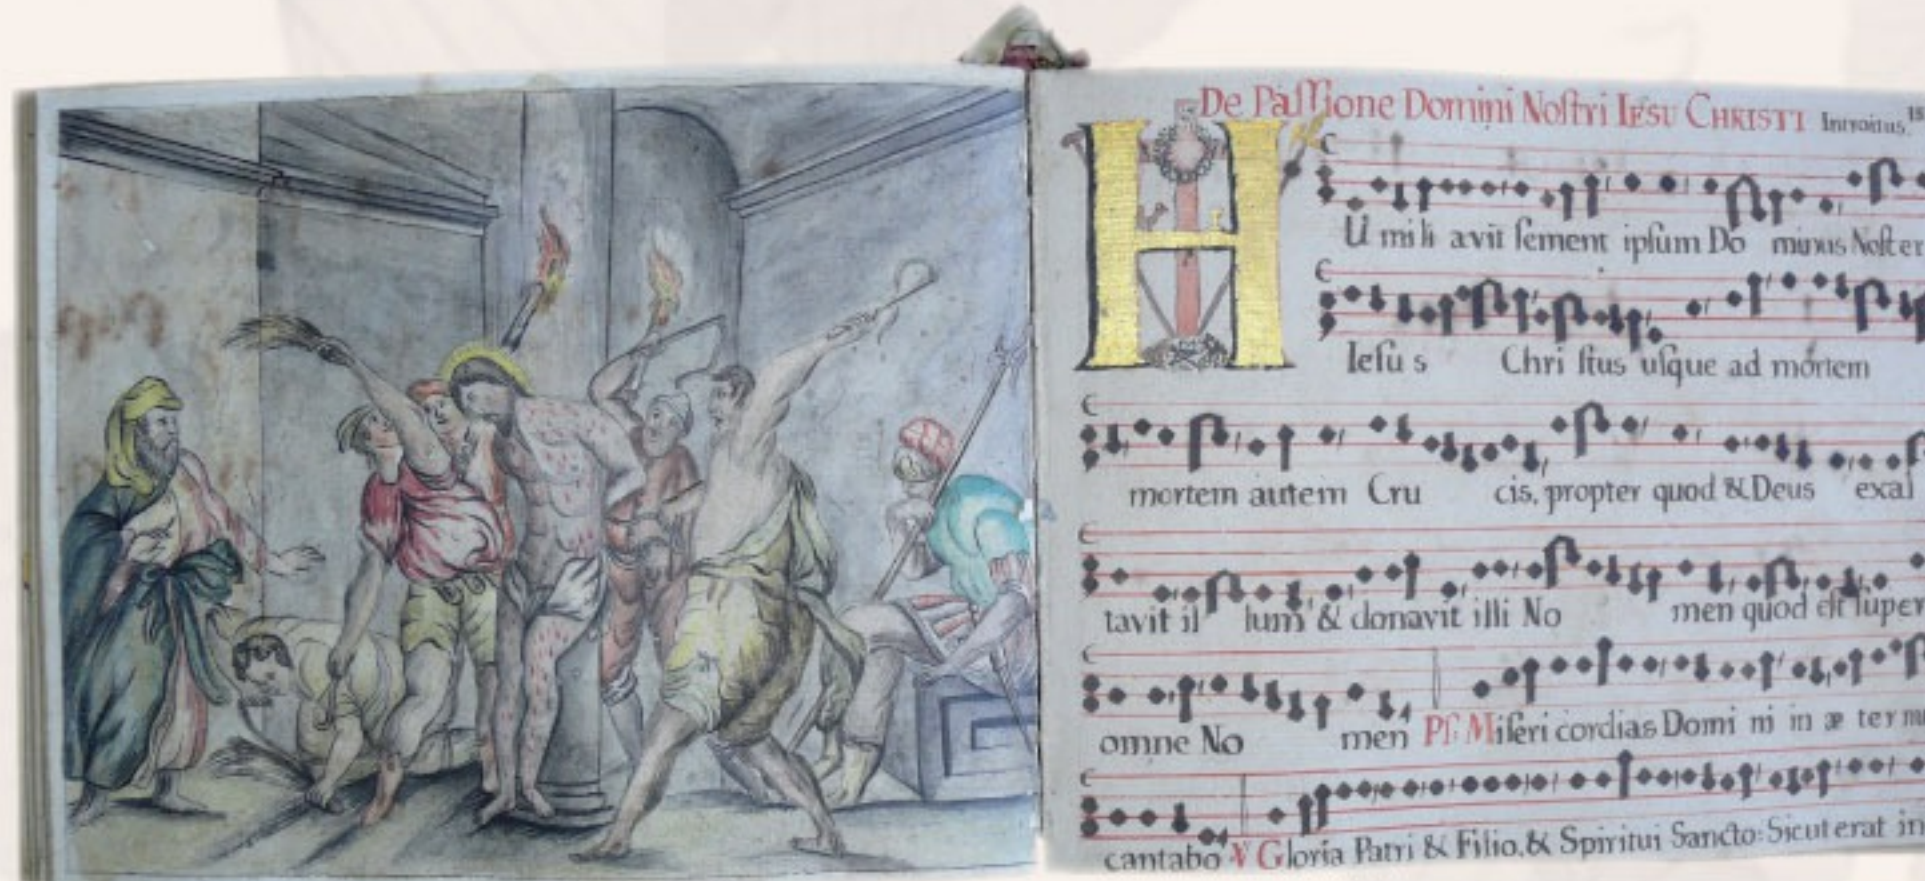 De Paſſione Domini Noſtri IESU CHRISTI Introitus.
HU mi li avit ſement ipſum Do minus Noſter
Ieſu s Chri ſtus uſque ad mortem
mortem autem Cru cis, propter quod & Deus exal
tavit il lum & donavit illi No men quod eſt ſuper
omne No men Pſ: Miſeri cordias Domi ni in æ ter
cantabo V Gloria Patri & Filio, & Spiritui Sancto: Sicut erat in